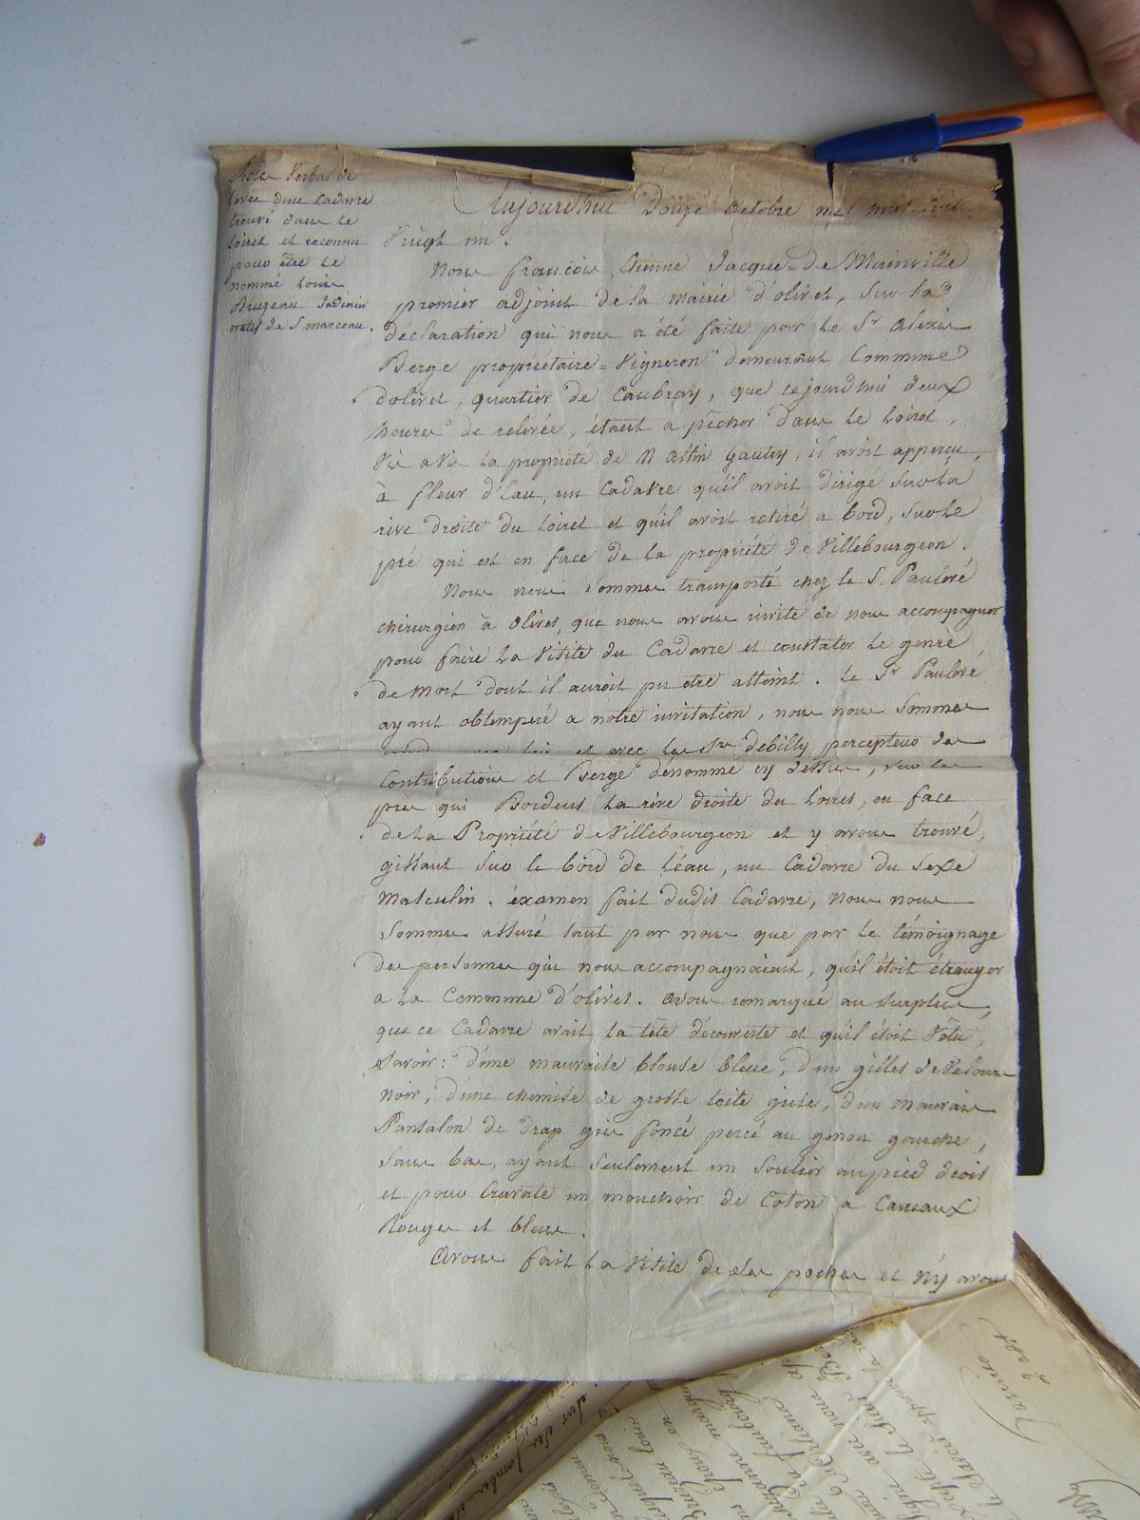 Procès Verbal de
levée d'un Cadavre
trouvé dans le
Loiret et reconnu
pour être le
nommé Louis
Brugeau Jardinier
natif de S. marceau.
Aujourd'hui Douze Octobre mil huit cent
Vingt un.
Nous françois Etienne Jacque De Mainville
premier adjoint de la mairie d'olivet, Sur la
declaration qui nous a été faite par le Sr Alexis
Berge propriétaire = Vigneron demeurant Commune
d'olivet, quartier de Caubray, que cejourd'hui deux
heures de relevée, étant a pêcher dans le Loiret,
Vis a Vis la propriété de M Gautry, il avoit apperçu,
à fleur d'Eau, un Cadavre quil avoit dirigé Sur la
rive droite du Loiret et quil avoit retiré a bord, Sur le
pré qui est en face de la propriété de Villebourgeon.
Nous nous sommes transporté chez le S. Pauloré
chirurgien à Olivet, que nous avons invité de nous accompagner
pour faire la Visite du Cadavre et constater le genre
de mort dont il auroit pu etre atteint. Le Sr Pauloré
ayant obtempéré a notre invitation, nous nous Sommes
et avec les Srs debilly percepteur des
Contributions et Berge dénommé cy dessus, sur les
prés qui Bordent la rive droite du Loiret, en face
de la Propriété de Villebourgeon et y avons trouvé,
gissant Sur le bord de l'éau, un Cadavre du Sexe
Masculin. éxamen fait dudit Cadavre, nous nous
Sommes assuré tant par nous que par le témoignage
des personnes qui nous accompagnoient, qu'il étoit étranger
a la Commune d'olivet. avons remarqué au surplus,
que ce Cadavre avait la tête découverte et qu'il étoit Vêtu,
Savoir: d'une mauvaise blouse bleue, d'un gillet de Velours
noir, d'une chemise de grosse toile grise, d'un mauvais
Pantalon de drap gris foncé percé au genou gauche,
sans bas, ayant seulement un Soulier au pied droit
et pour Cravate un mouchoir de Coton a Careaux
Rouges et bleus.
Avons fait la Visite de Ses poches et n'y avons